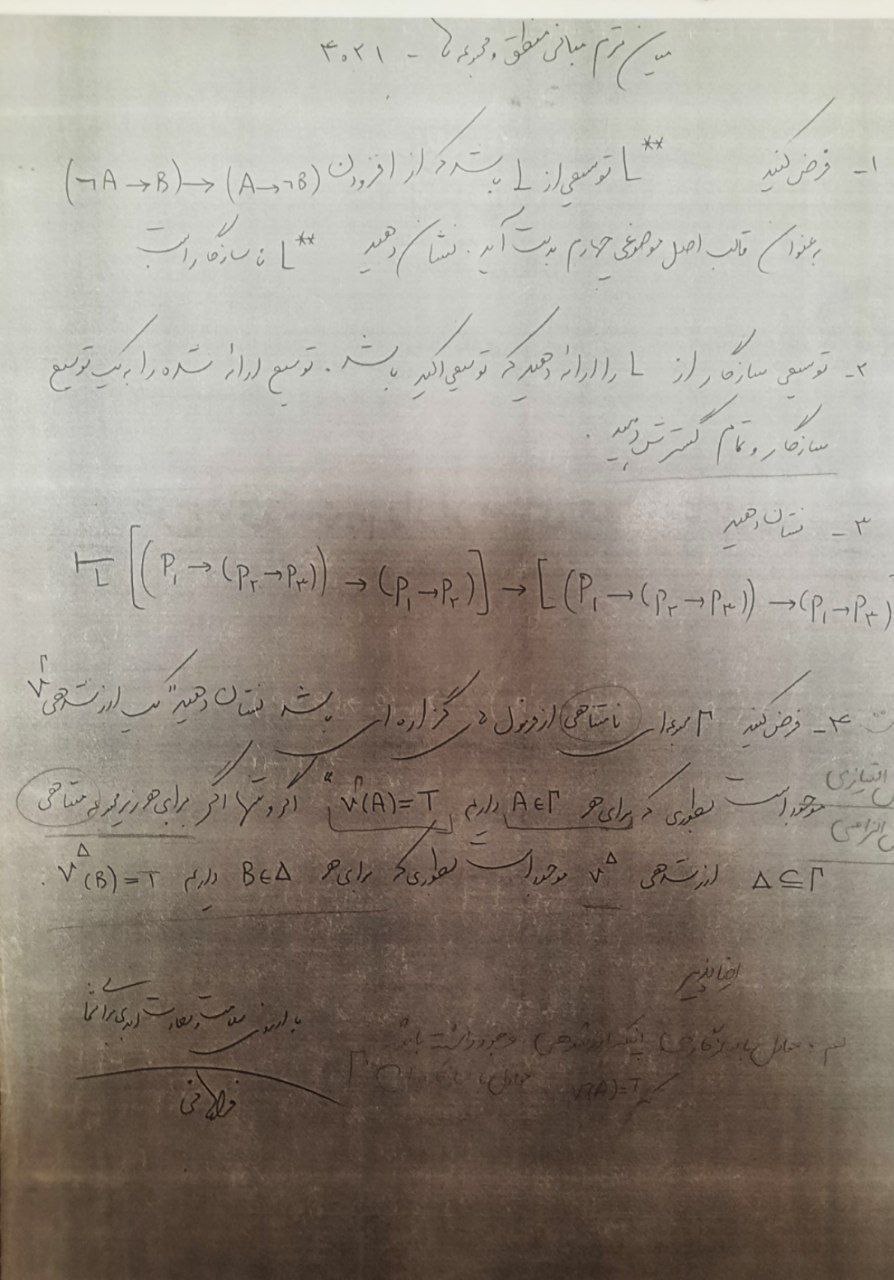 میان ترم مبانی منطق و مجموعه ها - ۴۰۲۱
۱- فرض کنید L** توسیعی از L باشد که از افزودن (¬A→B)→(A→¬B)
به عنوان قالب اصل موضوعی چهارم بدست آید. نشان دهید L** ناسازگار است
۲- توسیعی سازگار از L را ارائه دهید که توسیعی اکید باشد. توسیع ارائه شده را به یک توسیع
سازگار و تمام گسترش دهید.
۳- نشان دهید
⊢L [(P₁→(P₂→P₃))→(P₁→P₂)]→[(P₁→(P₂→P₃))→(P₁→P₃)
۴- فرض کنید Γ مجموعه ای نامتناهی از فرمول های گزاره ای باشد نشان دهید "یک ارزشدهی v^Γ
موجود است بطوری که برای هر A∈Γ داریم v^Γ(A)=T" اگر و تنها اگر برای هر زیرمجموعه متناهی
Δ⊆Γ ارزشدهی v^Δ موجود است بطوری که برای هر B∈Δ داریم v^Δ(B)=T.
امتیازی
الزامی
ارضاپذیر
ارزشدهی وجود داشته باشد
که v(A)=T معادل با Γ
با آرزوی سلامت و سعادت برای شما